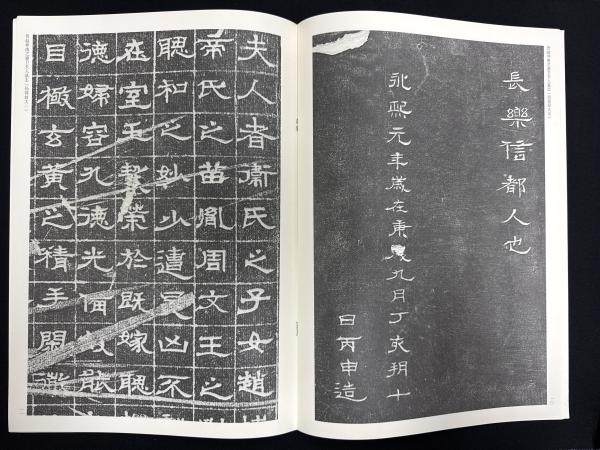 長樂信都人也
永熙元年歲在庚戌九月丁亥朔十
日丙申造
夫人者衞氏之子女趙
帝氏之苗胤周文王之
聰和之妙少遭旻凶不
在室玉絜榮於既嫁聰
德婦容孔德光備故能
目極玄黃之積手閑